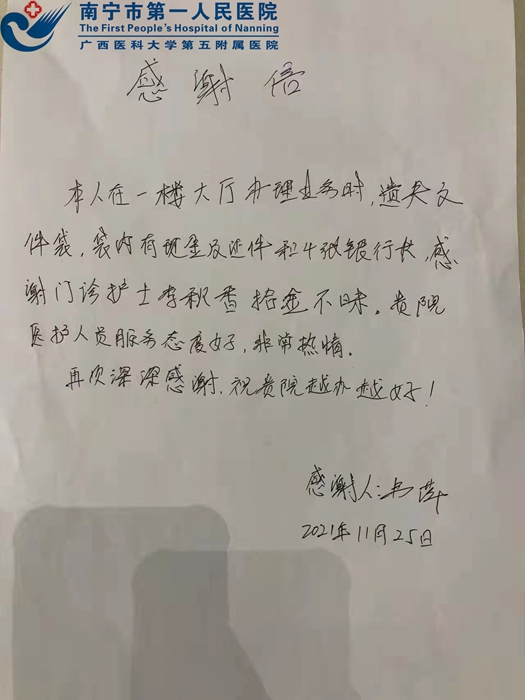 南宁市第一人民医院
The First People's Hospital of Nanning
广西医科大学第五附属医院
感谢信
本人在一楼大厅办理业务时,遗失文
件袋,袋内有现金及证件和4张银行卡,感
谢门诊护士李秋香拾金不昧。贵院
医护人员服务态度好,非常热情。
再次深深感谢,祝贵院越办越好!
感谢人:
2021年11月25日